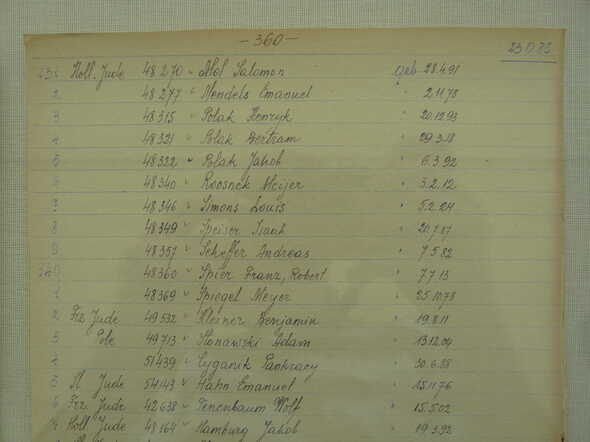 - 360 -
Holl. Jude 48270 " Mol Salomon geb. 28.4.91
2 48277 " Mendels Emanuel " 2.11.78
3 48315 " Polak Henryk " 20.12.93
4 48321 " Polak Bertram " 29.3.18
5 48322 " Polak Jakob " 6.3.92
6 48340 " Roosnek Meijer " 3.2.12
7 48346 " Simons Louis " 5.2.24
8 48349 " Speiser Isaak " 20.7.87
9 48357 " Scheffer Andreas " 7.5.82
48360 " Spier Franz, Robert " 7.7.13
1 48369 " Spiegel Meyer " 25.10.78
2 Frz Jude 49532 " Kleiner Benjamin " 19.8.11
3 Pole 49713 " Adam " 13.12.04
4 51439 " Cyganik Pankracy " 30.6.88
5 Jude 54143 " Hahn Emanuel " 15.11.76
6 Frz Jude 42638 " Tenenbaum Wolf " 15.5.02
7 Holl Jude 48164 " Hamburg Jakob " 19.3.92